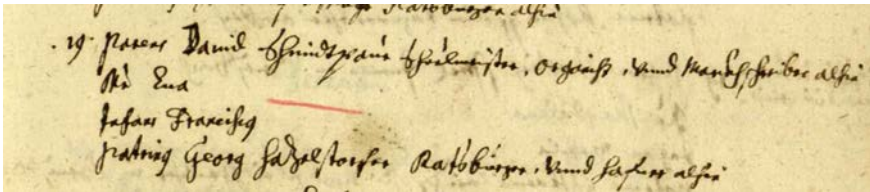 Ratsbürger alhie
19. Parens David Schmidtpaur Schuelmaister, Organist, vnnd Marckhschreiber alhie
Ux: Eua
Infans Franciscus
Patrinus Georg Ratsbürger, vnnd Hafner alhie